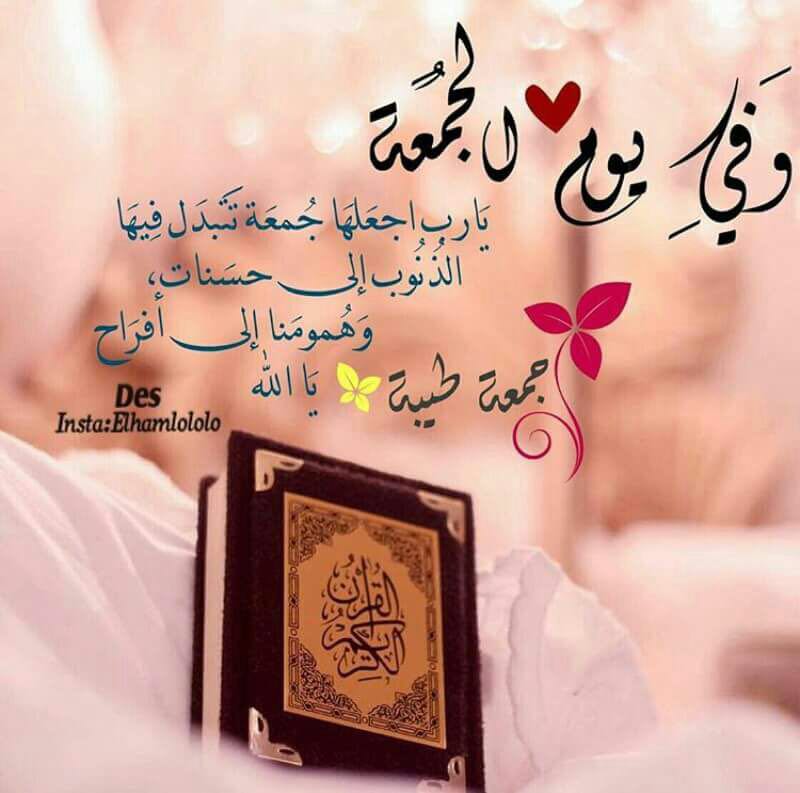 وَفي يوم الجُمعة
يَارب اجعَلهَا جُمعَة تَتَبدَل فِيهَا
الذُنُوب إلى حسَنات،
وَهُمومَنا إلى أفرَاح
يَا الله
جمعة طيبة
Des
Insta:Elhamlololo
القرآن
الكريم